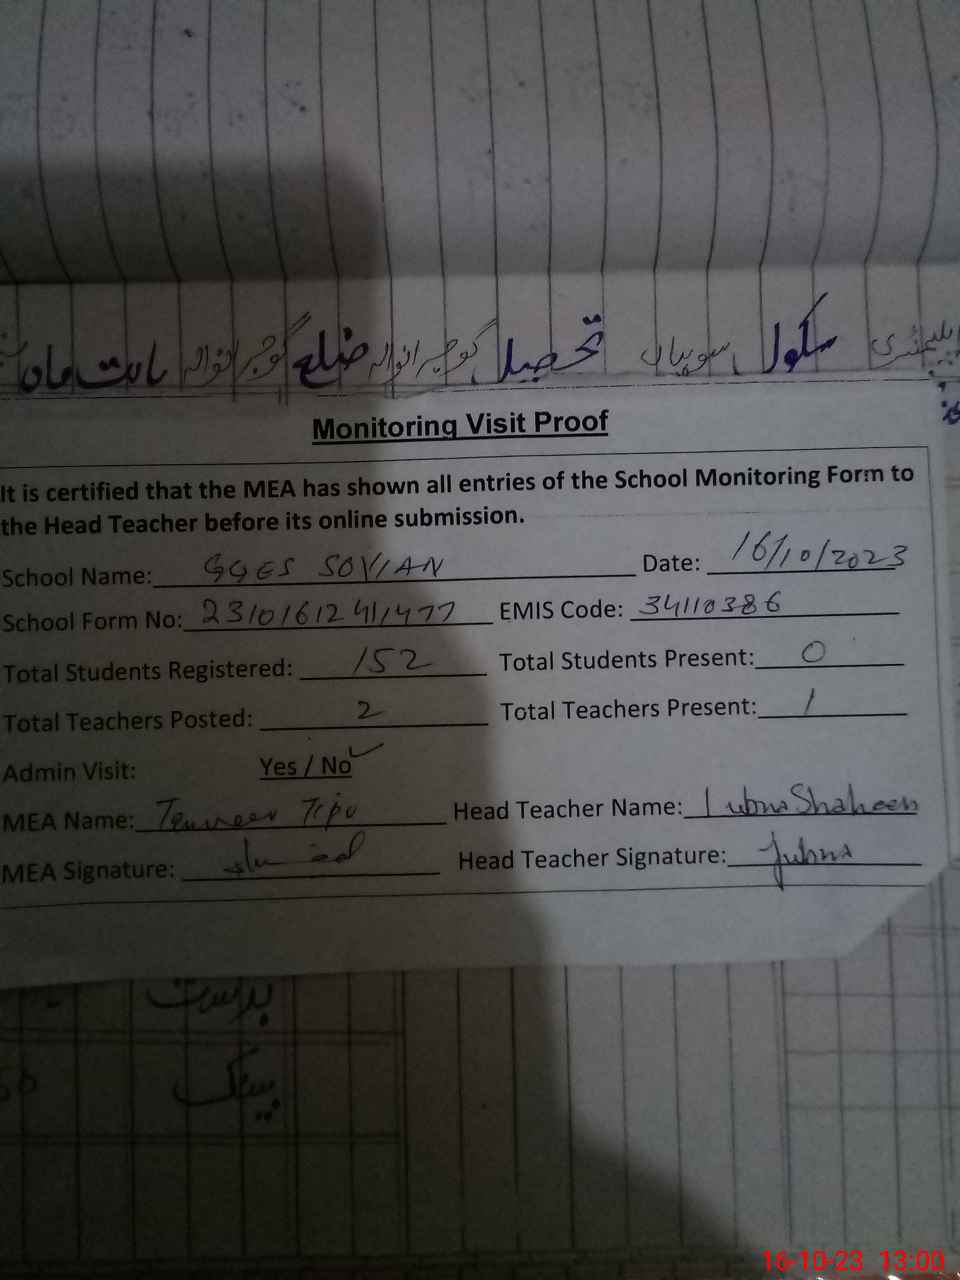 سکول سویاں تحصیل گوجرانوالہ ضلع گوجرانوالہ بابت ماہ
Monitoring Visit Proof
It is certified that the MEA has shown all entries of the School Monitoring Form to
the Head Teacher before its online submission.
School Name: GGES SOVIAN Date: 16/10/2023
School Form No: EMIS Code: 34110386
Total Students Registered: 152 Total Students Present: 0
Total Teachers Posted: 2 Total Teachers Present: 1
Admin Visit: Yes / No
MEA Name: Tanveer Tipu Head Teacher Name: Lubna Shaheen
MEA Signature: Head Teacher Signature: Lubna
بدست
16-10-23 13:00